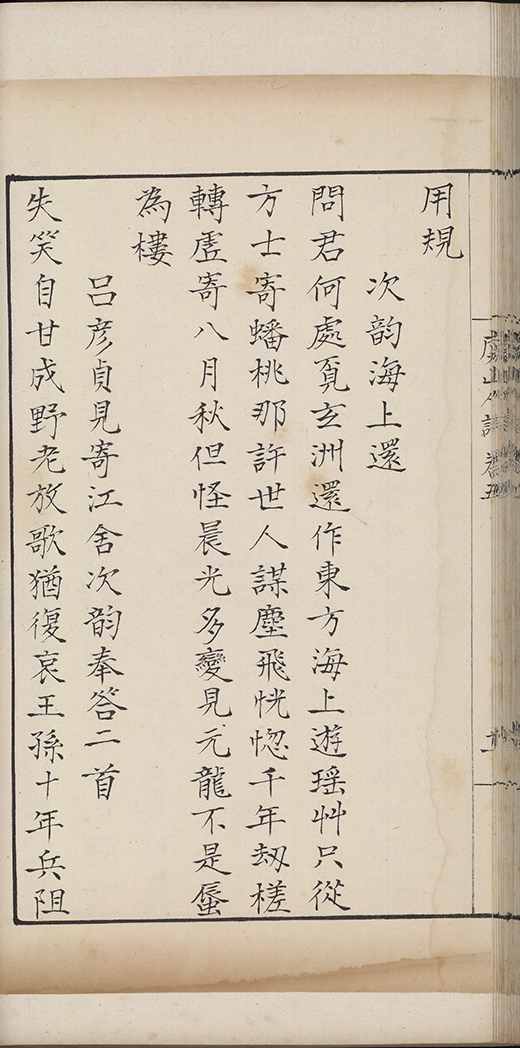 虞山人詩 卷五
用規
次韵海上還
問君何處覔玄洲還作東方海上遊瑶艸只從
方士寄蟠桃那許世人謀塵飛恍惚千年刼槎
轉虗寄八月秋但怪晨光多變見元龍不是蜃
為樓
吕彦貞見寄江舍次韵奉答二首
失笑自甘成野老放歌猶復哀王孫十年兵阻